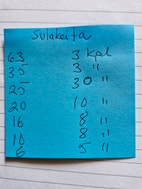 Sulakeita
63 3 kpl
35 3 "
25 30 "
20 10 "
16 8 "
10 8 "
6 5 "